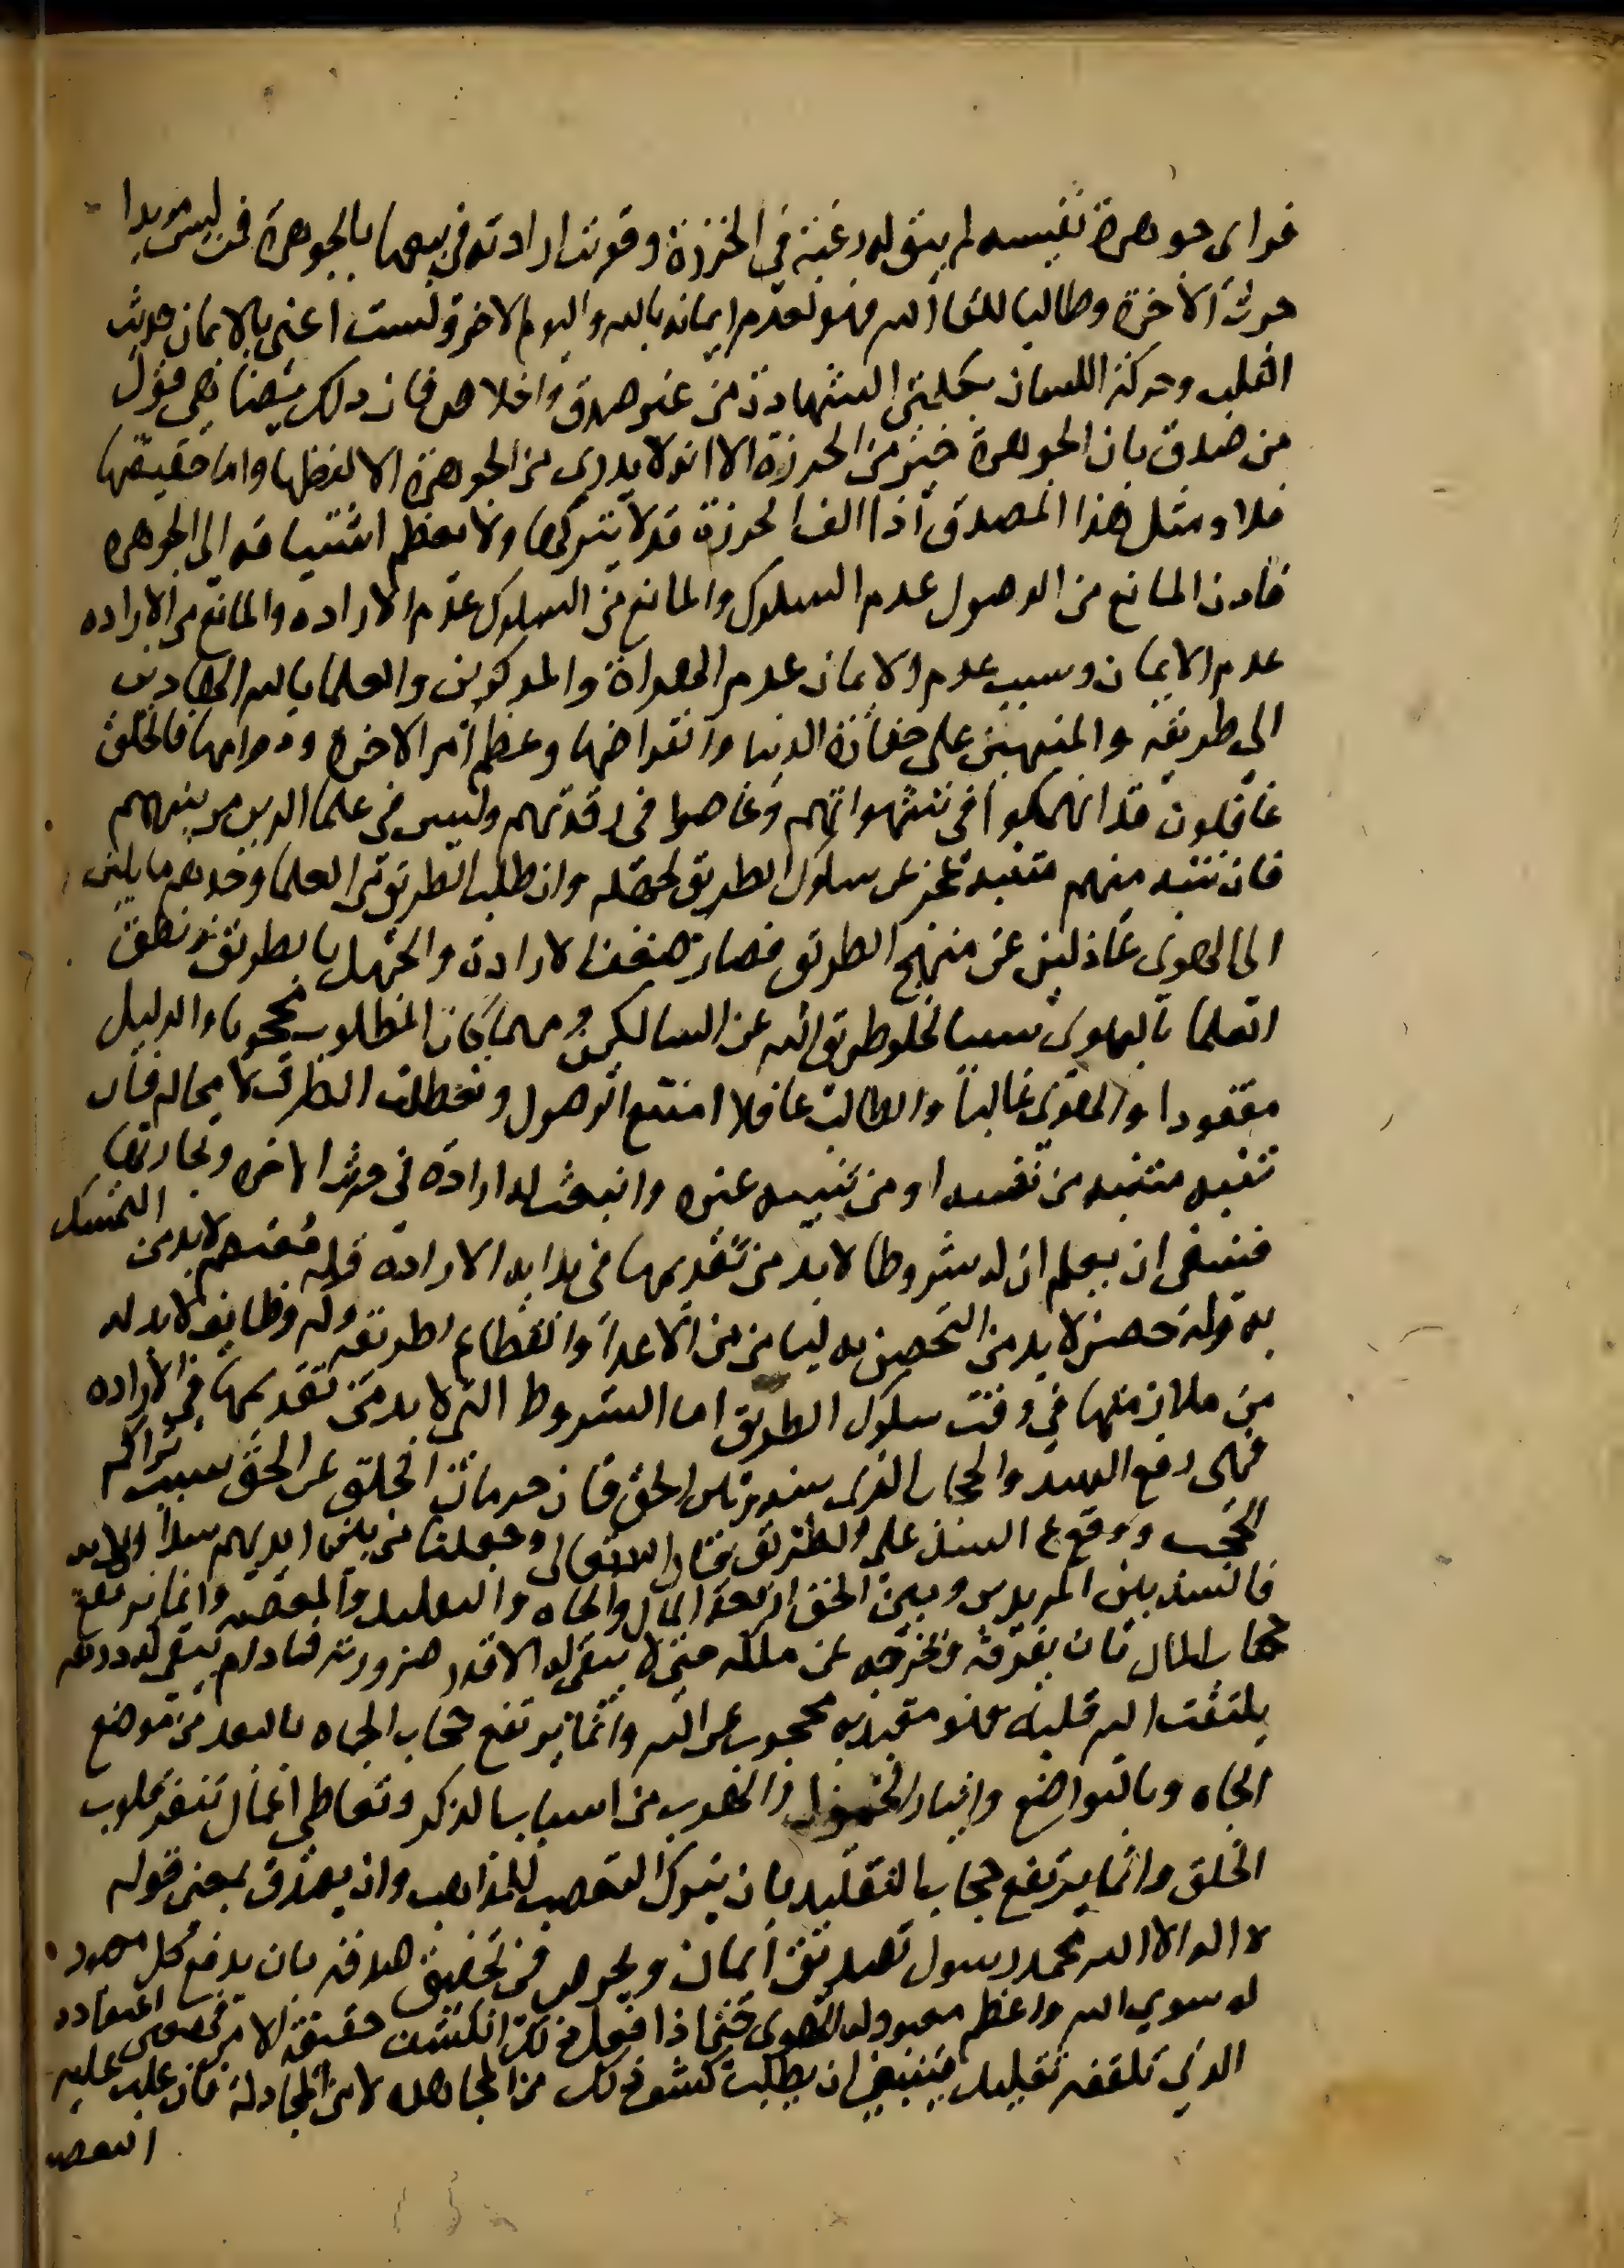 فراى جوهرة نفيسه لم يبق له رغبة في الخرزة وقويت ارادته في بيعها بالجوهرة فمن ليس مريدا
حرث الاخرة وطالبا للقا الله فهو لعدم ايمانه بالله واليوم الاخر ولست اعني بالايمان حديث
القلب وحركة اللسان بكلمتى الشهادة من غير صدق واخلاص فان ذلك يضاهي قول
من صدق بان الجوهرة خير من الخرزة الا انه لا يدري من الجوهرة الا لفظها واما حقيقتها
فلا ومثل هذا المصدق اذا الف الخرزة قد لا يتركها ولا يعظم اشتياقه الى الجوهره
فاذن المانع من الوصول عدم السلوك والمانع من السلوك عدم الاراده والمانع من الاراده
عدم الايمان وسبب عدم الايمان عدم الهداة والمذكرين والعلما بالله الهادين
الى طريقه والمنبهين على حقارة الدنيا وانقراضها وعظم امر الاخره ودوامها فالخلق
غافلون قد انهمكوا في شهواتهم وغاصوا في رقدتهم وليس في علما الدين من ينبههم
فان تنبه منهم متنبه عجز عن سلوك الطريق لجهله وان طلب الطريق من العلما وجدهم مايلين
الى الهوى عادلين عن منهج الطريق فصار ضعف الارادة والجهل بالطريق ونطق
العلما بالهوى سببا لخلو طريق الله عن السالكين ومهما كان المطلوب محجوبا والدليل
مفقودا والهوى غالبا والطالب غافلا امتنع الوصول وتعطلت الطرق لا محاله فان
تنبه متنبه من نفسه او من تنبيه غيره وانبعث له ارادة في حرث الاخره وتجارتها
فينبغي ان يعلم ان له شروطا لا بد من تقديمها في بداية الارادة وله معتصم لابد من التمسك
به وله حصن لا بد من التحصن به ليامن من الاعدا وانقطاع لطريقه وله وظايف لا بد له
من ملازمتها في وقت سلوك الطريق اما الشروط التي لا بد من تقديمها في الاراده
فهى رفع السد والحجاب الذى بينه وبين الحق فان حرمان الخلق عن الحق سببه تراكم
الحجب ووقوع السد على الطريق قال الله تعالى وجعلنا من بين ايديهم سدا الايه
فالسد بين المريد وبين الحق اربعة المال والجاه والتقليد والمعصيه وانما يرتفع
حجاب المال بان يفرقه ويخرجه عن ملكه حتى لا يبقى له الا قدر ضرورته فما دام يبقى له درهم
يلتفت اليه قلبه فهو مقيد به محجوب عن الله وانما يرتفع حجاب الجاه بالبعد من موضع
الجاه وبالتواضع وايثار الخمول والهرب من اسباب الذكر وتعاطي اعمال تنفر قلوب
الخلق وانما يرتفع حجاب التقليد بان يترك التعصب للمذاهب وان يصدق بمعنى قوله
لا اله الا الله محمد رسول تصديق ايمان ويحرص في تحقيق صدقه بان يرفع كل معبود
له سوي الله واعظم معبود له الهوى حتى اذا فعل ذلك انكشف حقيقة الامر في معنى اعتقاده
الذي تلقفه تقليدا فينبغي ان يطلب كشف ذلك من المجاهده لا من المجادلة فان غلب عليه
التعصب